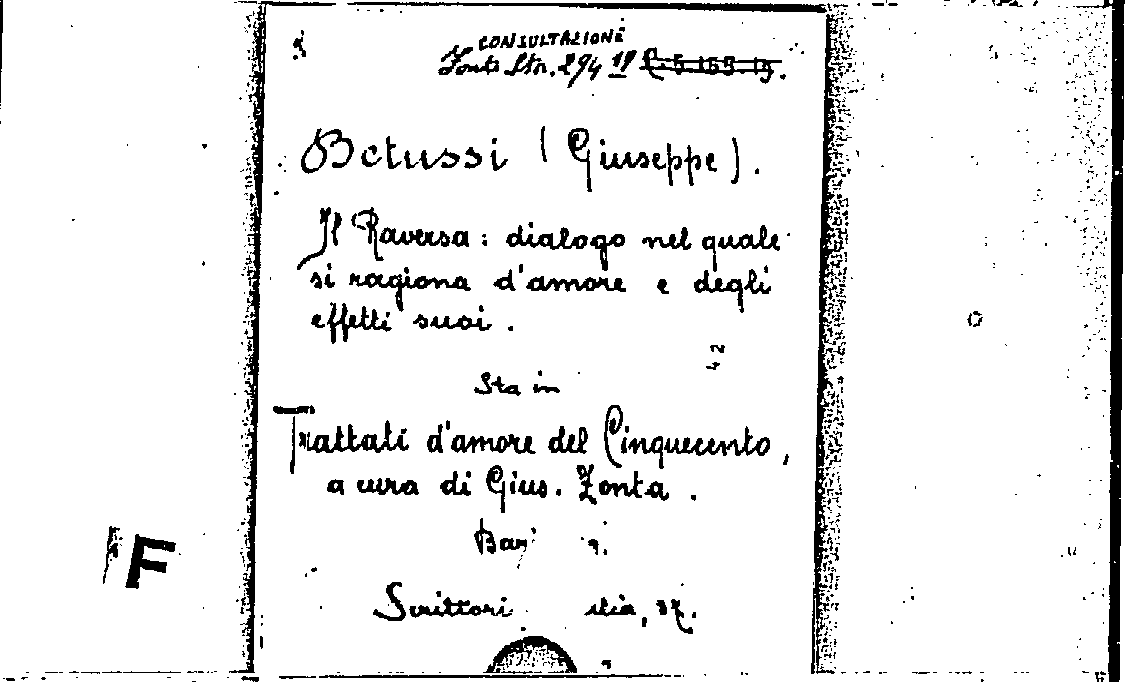 CONSULTAZIONE
Fonti Str. 294 19 C.5.165.15.
Betussi (Giuseppe).
Il Raversa: dialogo nel quale
si ragiona d'amore e degli
effetti suoi.
Sta in
Trattati d'amore del Cinquecento,
a cura di Gius. Zonta.
Bari
Scrittori
F